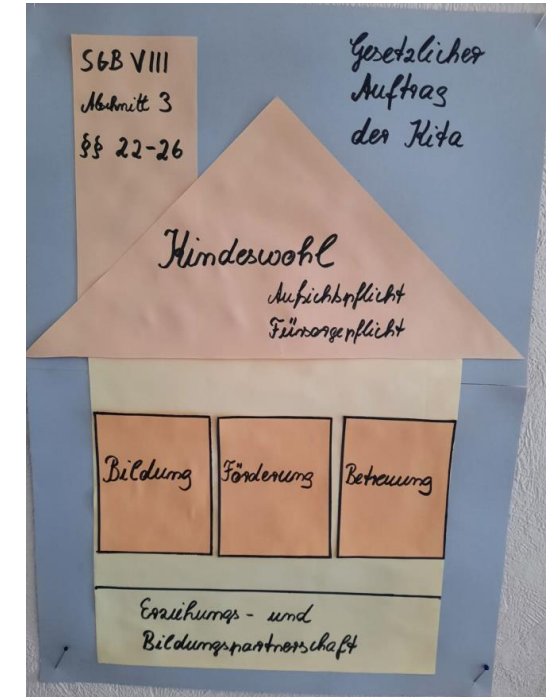 SGB VIII
Abschnitt 3
§§ 22-26
Gesetzlicher
Auftrag
der Kita
Kindeswohl
Aufsichtspflicht
Fürsorgepflicht
Bildung
Förderung
Betreuung
Erziehungs- und
Bildungspartnerschaft